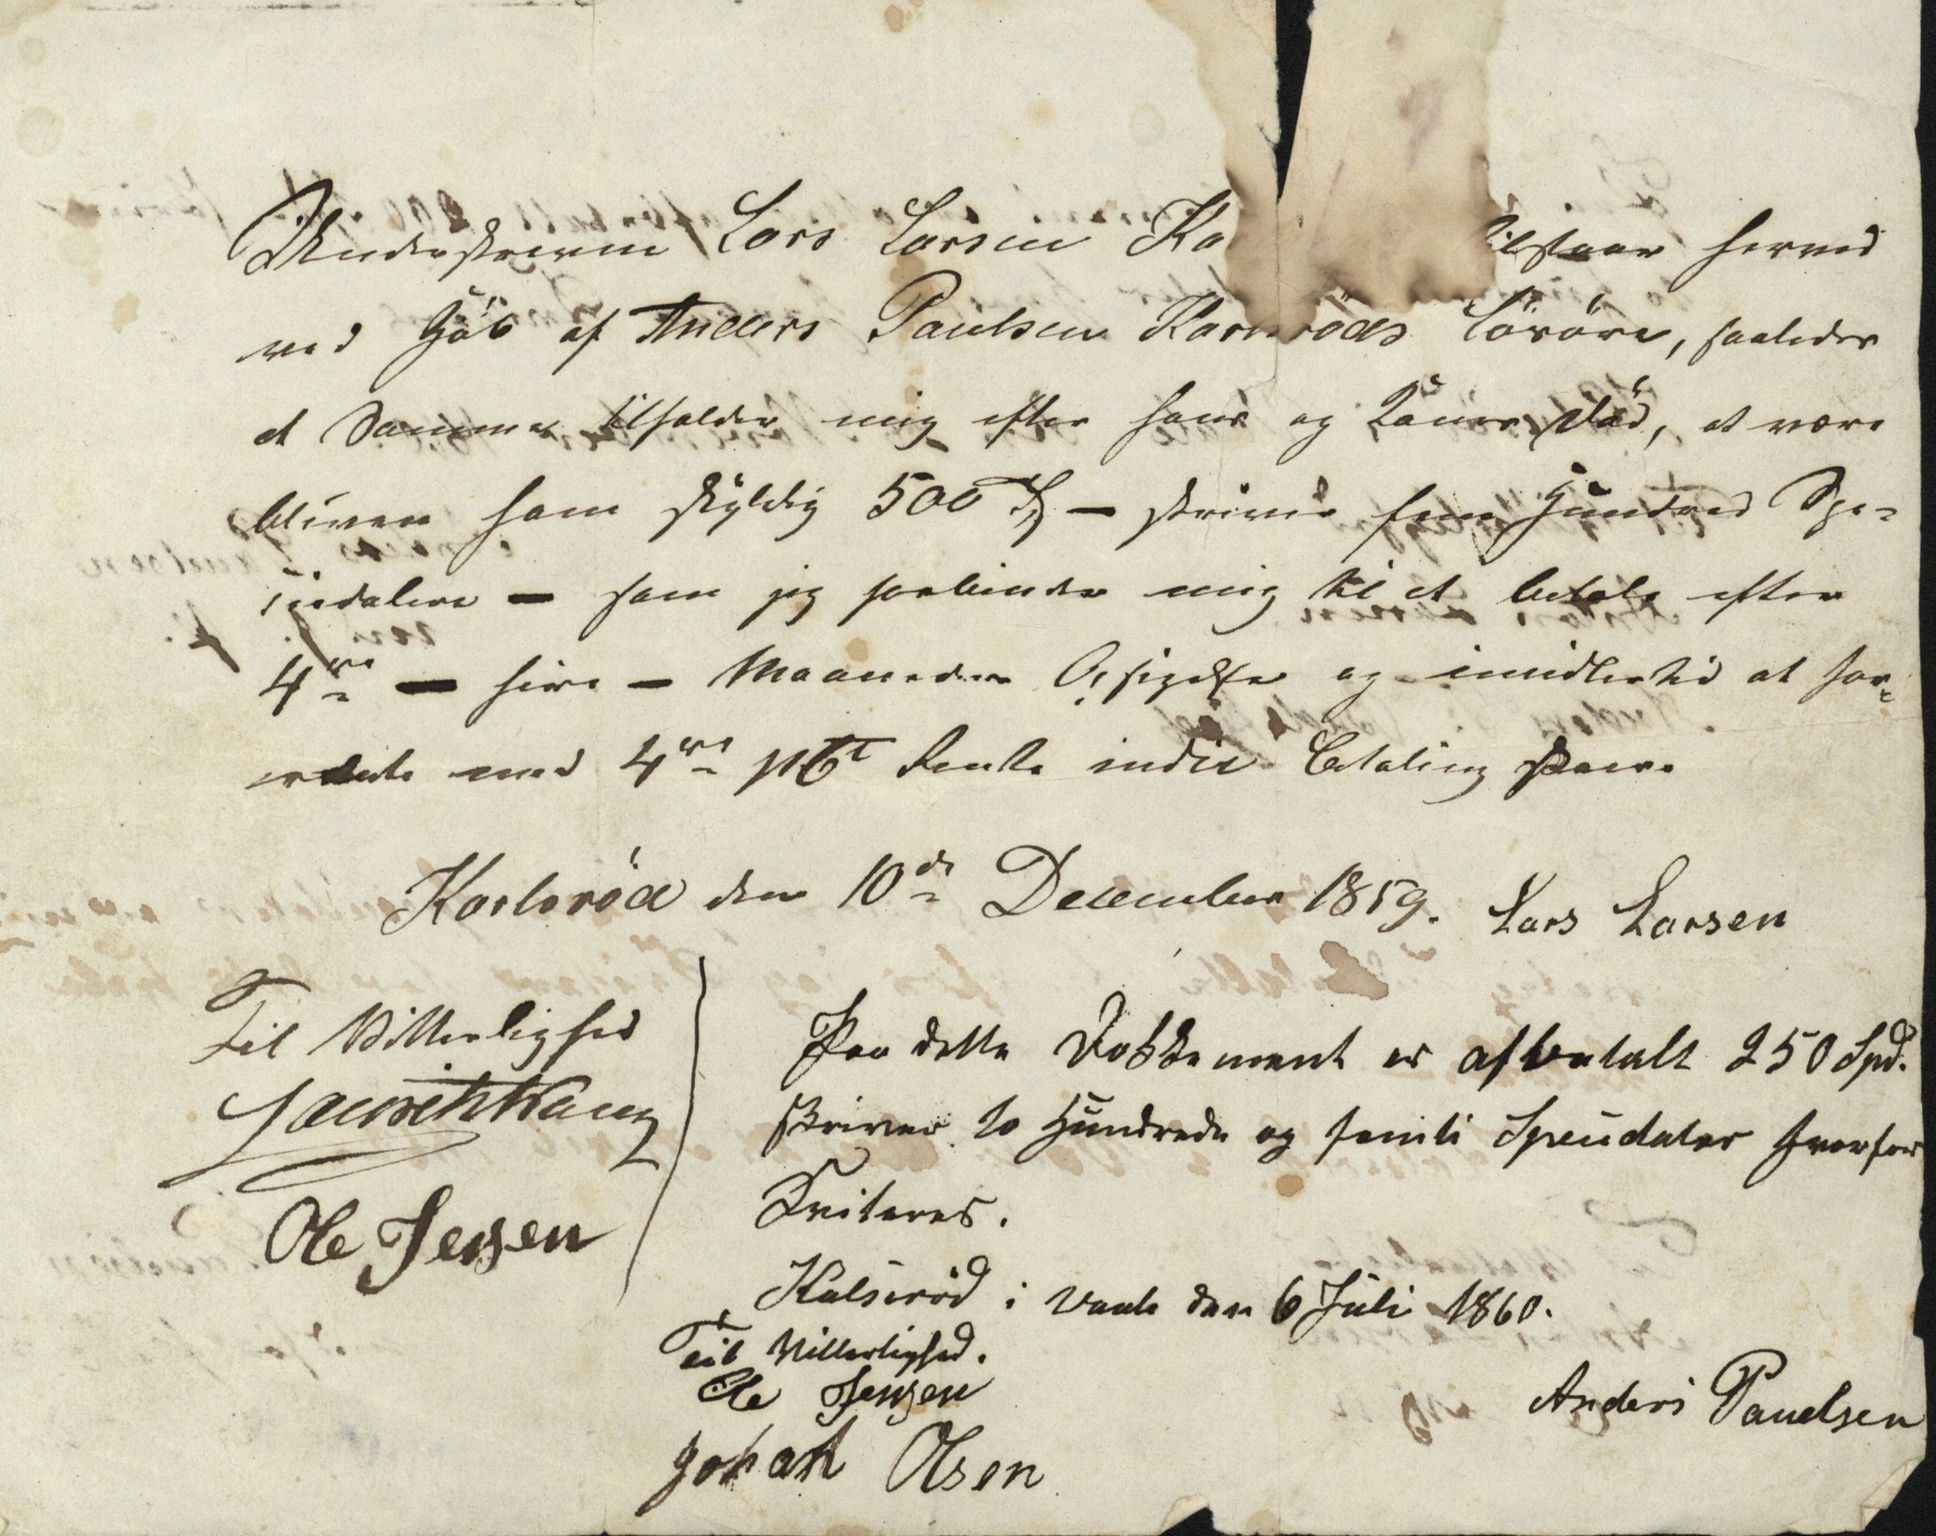 Underskreven Lars Larsen Ka tilstaar herved
ved Kjöb af Anders Paulsen Karlsröds Lösöre, saaledes
at Samme tilfalder mig efter hans og Kones Död, at være
bleven ham skyldig 500 Spd - skriver fem Hundred Spe-
ciedalere - som jeg forbinder mig til at betale efter
4re - fire - Maaneders Opsigelse og imidlertid at for-
rente med 4re pCt Rente indtil Betaling skeer.
Karlsröd den 10de December 1859. Lars Larsen
Til Vitterlighed
Ole Jensen
Paa dette Dokkement er afbetalt 250 Spd.
skriver to Hundrede og femti Speciedaler hvorfor
Kviteres.
Kalsröd i Vaale den 6 Juli 1860.
Til Vitterlighed.
Ole Jensen
Johan Olsen
Anders Pauelsen